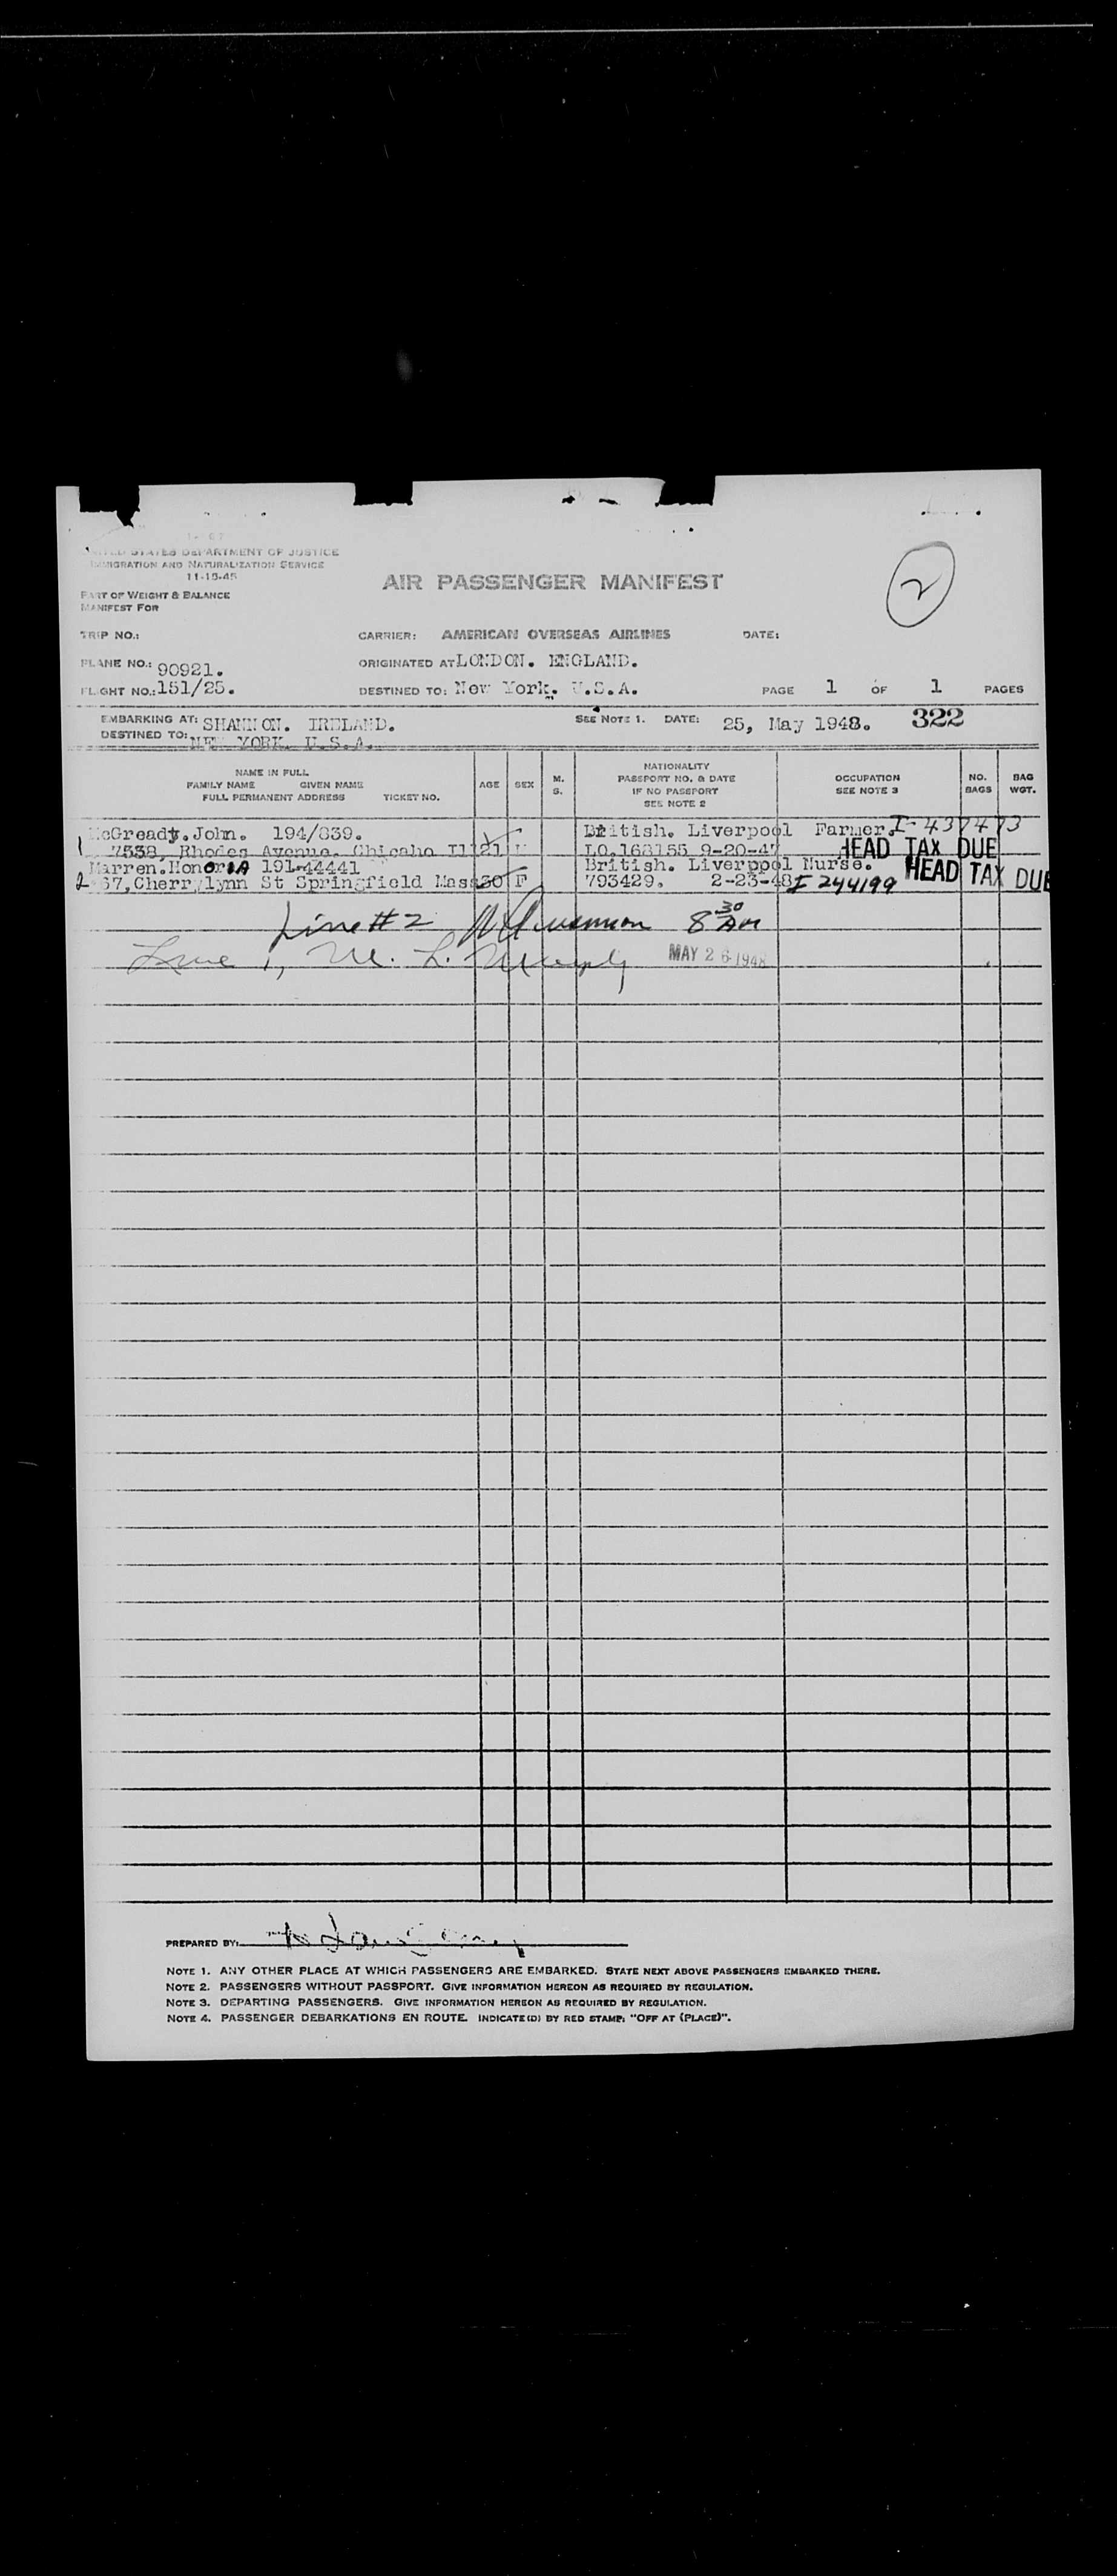 UNITED STATES DEPARTMENT OF JUSTICE
IMMIGRATION AND NATURALIZATION SERVICE
11-15-45
AIR PASSENGER MANIFEST
2
PART OF WEIGHT & BALANCE
MANIFEST FOR
TRIP NO.: CARRIER: AMERICAN OVERSEAS AIRLINES DATE:
PLANE NO.: 90921. ORIGINATED AT LONDON. ENGLAND.
FLIGHT NO.: 151/25. DESTINED TO: New York. U.S.A. PAGE 1 OF 1 PAGES
EMBARKING AT: SHANNON. IRELAND. SEE NOTE 1. DATE: 25, May 1948. 322
DESTINED TO: NEW YORK. U.S.A.
NAME IN FULL
FAMILY NAME GIVEN NAME
FULL PERMANENT ADDRESS TICKET NO.
AGE SEX M. S.
NATIONALITY
PASSPORT NO. & DATE
IF NO PASSPORT
SEE NOTE 2
OCCUPATION
SEE NOTE 3
NO. BAGS
BAG WGT.
1 McGready. John. 194/839. British. Liverpool Farmer. I-437473
7538, Rhodes Avenue. Chicaho Ill 21 M LO.163155 9-20-47 HEAD TAX DUE
Marren. HonorIA 191-44441 British. Liverppol Nurse. HEAD TAX DUE
2 67, Cherrylynn St Springfield Mass 30 F 793429. 2-23-48 I 244199
Line #2 8 30 AM
Line 1, M. L. Murphy MAY 26 1948
PREPARED BY:
NOTE 1. ANY OTHER PLACE AT WHICH PASSENGERS ARE EMBARKED. STATE NEXT ABOVE PASSENGERS EMBARKED THERE.
NOTE 2. PASSENGERS WITHOUT PASSPORT. GIVE INFORMATION HEREON AS REQUIRED BY REGULATION.
NOTE 3. DEPARTING PASSENGERS. GIVE INFORMATION HEREON AS REQUIRED BY REGULATION.
NOTE 4. PASSENGER DEBARKATIONS EN ROUTE. INDICATE(D) BY RED STAMP: "OFF AT (PLACE)".